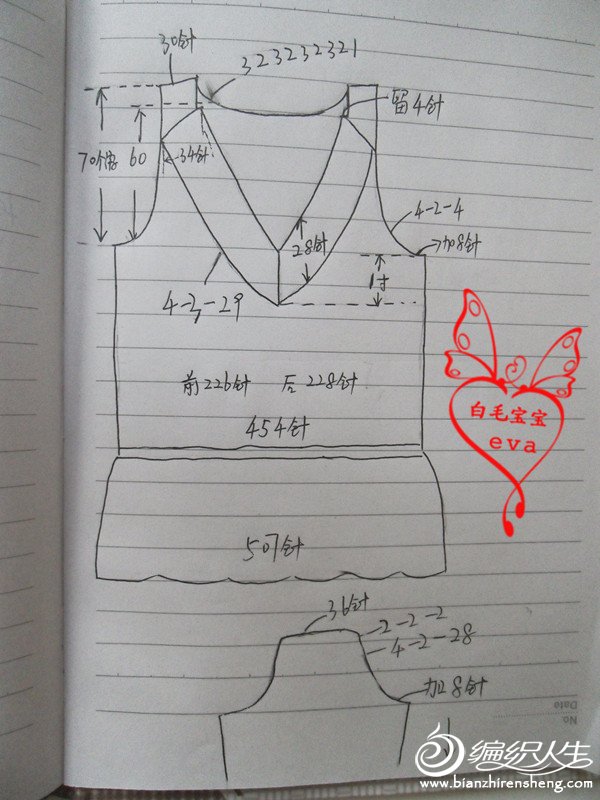 30针
323232321
留4针
70个色 60
34针
4-2-4
加8针
28针
1寸
4-2-29
前226针 后228针
454针
白毛宝宝
eva
507针
36针
2-2-2
4-2-28
加8针
No.
Date
编织人生
www.bianzhirensheng.com